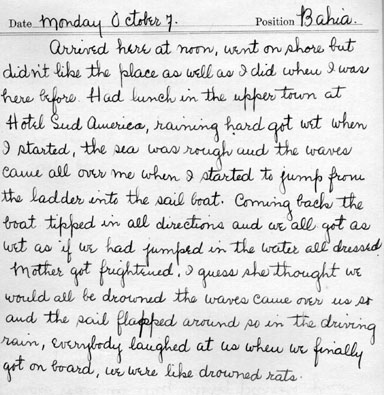 Date Monday October 7. Position Bahia.
Arrived here at noon, went on shore but
didn't like the place as well as I did when I was
here before. Had lunch in the upper town at
Hotel Sud America, raining hard got wet when
I started, the sea was rough and the waves
came all over me when I started to jump from
the ladder into the sail boat. Coming back the
boat tipped in all directions and we all got as
wet as if we had jumped in the water all dressed
Mother got frightened, I guess she thought we
would all be drowned the waves came over us so
and the sail flapped around so in the driving
rain, everybody laughed at us when we finally
got on board, we were like drowned rats.